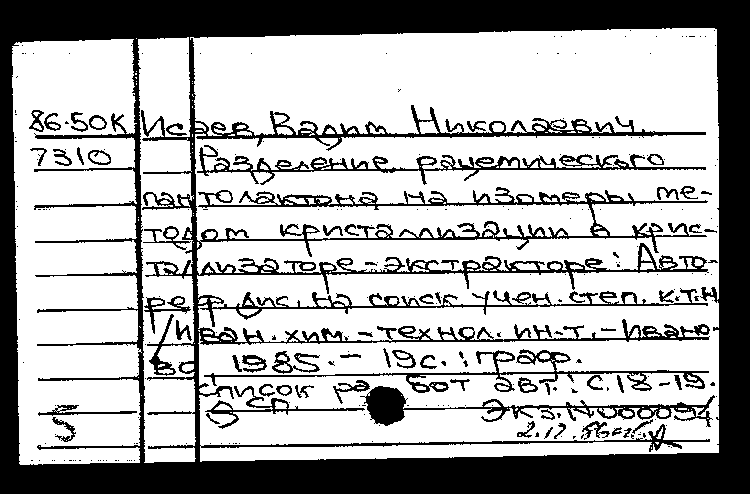 86-50К Исаев, Вадим Николаевич.
7310 Разделение рацемического
пантолактона на изомеры ме-
тодом кристаллизации в крис-
таллизаторе-экстракторе: Авто-
реф. дис. на соиск. учен. степ. к.т.н
/Иван. хим.-технол. ин-т.-Ивано-
во 1985.- 19с.: граф.
Список работ авт.: с.18-19.
Б сп.
Экз. N 000094
5 2.12.86